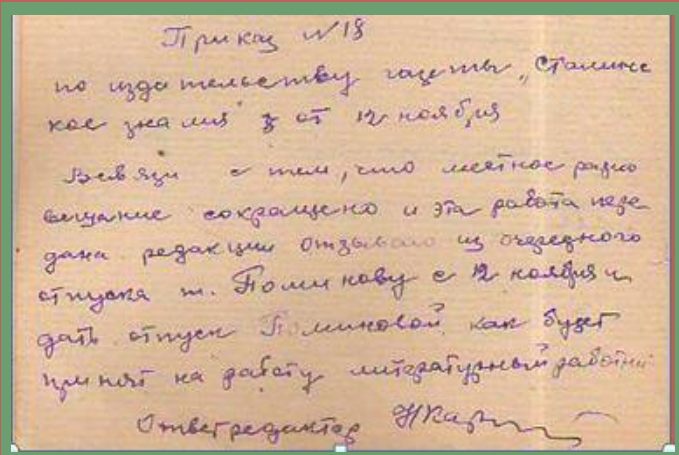 Приказ №18
по издательству газеты „Сталинс
кое знамя" от 12 ноября
Всвязи с тем, что местное радио
вещание сокращено и эта работа пере
дана редакции отзываю из очередного
отпуска т. Поминову с 12 ноября и
дать отпуск Поминовой как будет
принят на работу литературный работник
Ответредактор